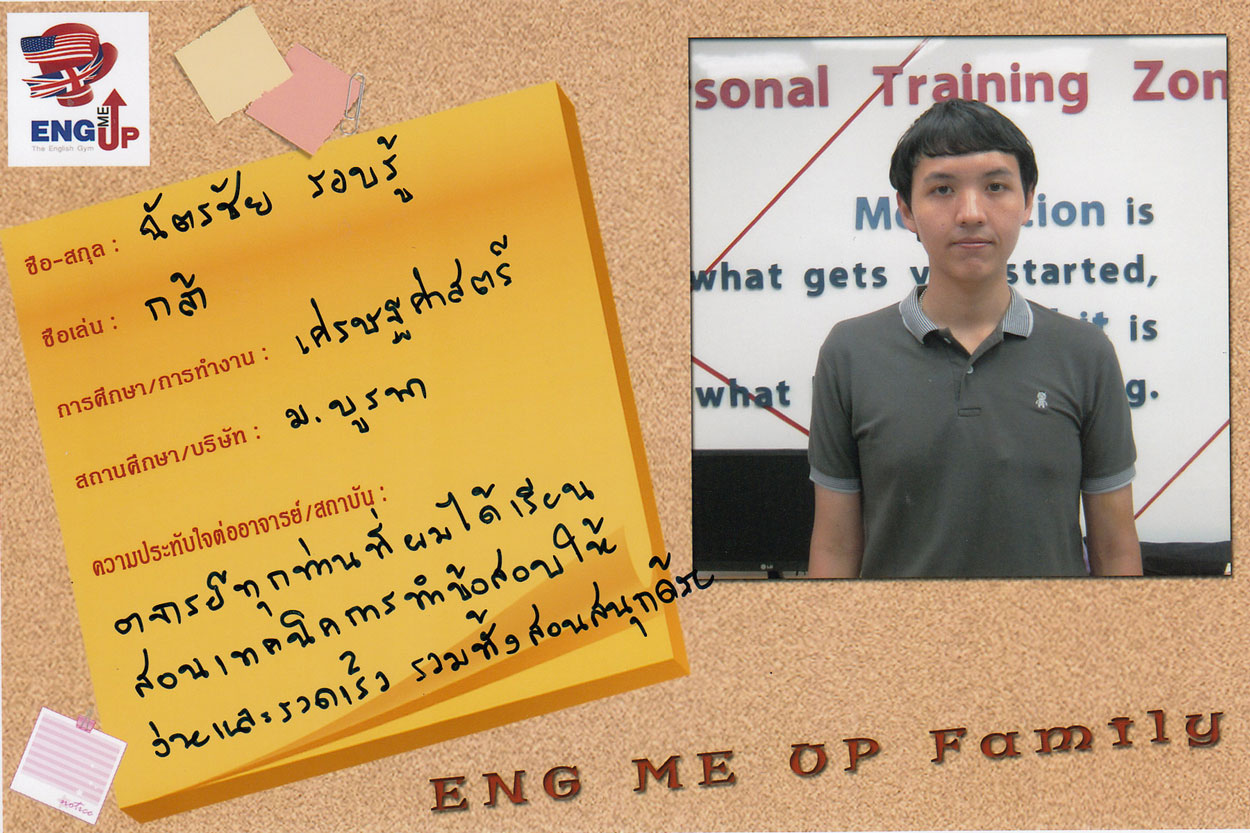 ENG ME UP
The English Gym
ชื่อ-สกุล : ฉัตรชัย รอบรู้
ชื่อเล่น : กล้า
การศึกษา/การทำงาน : เศรษฐศาสตร์
สถานศึกษา/บริษัท : ม.บูรพา
ความประทับใจต่ออาจารย์/สถาบัน :
อาจารย์ทุกท่านที่ผมได้เรียน
สอนเทคนิคการทำข้อสอบให้
ง่ายและรวดเร็ว รวมทั้งสอนสนุกด้วย
notice
sonal Training Zon
is
what gets started,
it is
what g.
LG
ENG ME UP Family